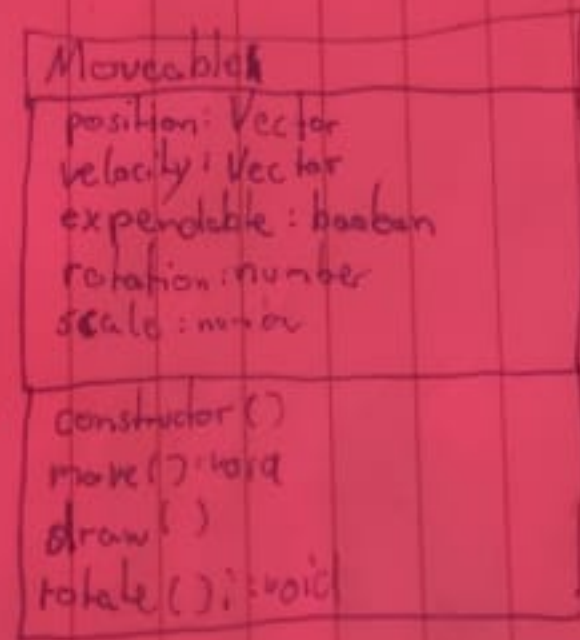 Moveable
position: Vector
velocity: Vector
expendable: boolean
rotation: number
scale: number
constructor()
move(): void
draw()
rotate(); : void